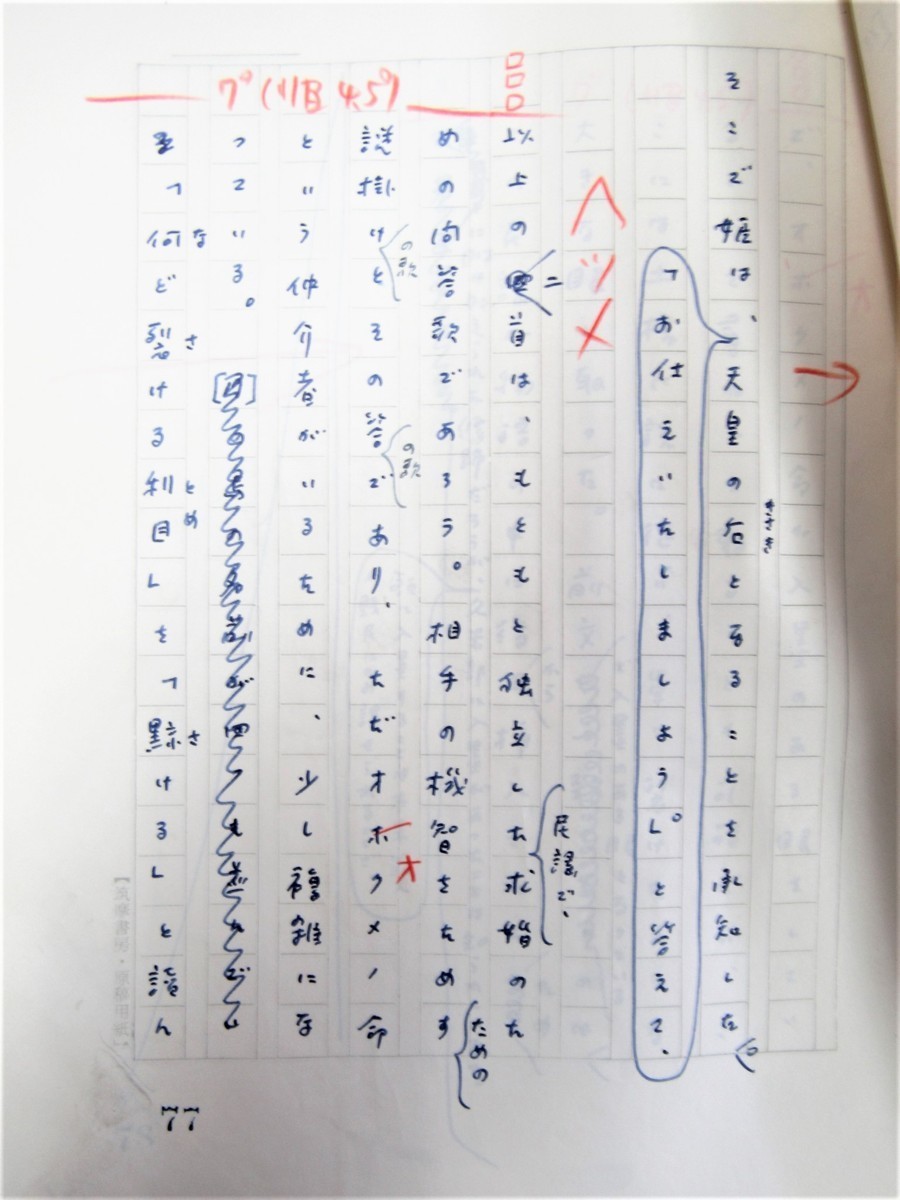 そこで媛は、天皇の后となることを承知した。
きさき
「お仕えいたしましょう」。と答えて、
ヘツメ
以上の二首は、もともと独立した求婚のた
民謡で、
めの問答歌であろう。相手の機智をためす
ための
謎掛けとその答であり、ただオホクメノ命
の歌
の歌
オ
という仲介者がいるために、少し複雑にな
っている。
を「何ど裂ける利目」を「黥ける」と読ん
な
さ
と
め
さ
7ポ(11日45)
77
【筑摩書房・原稿用紙】